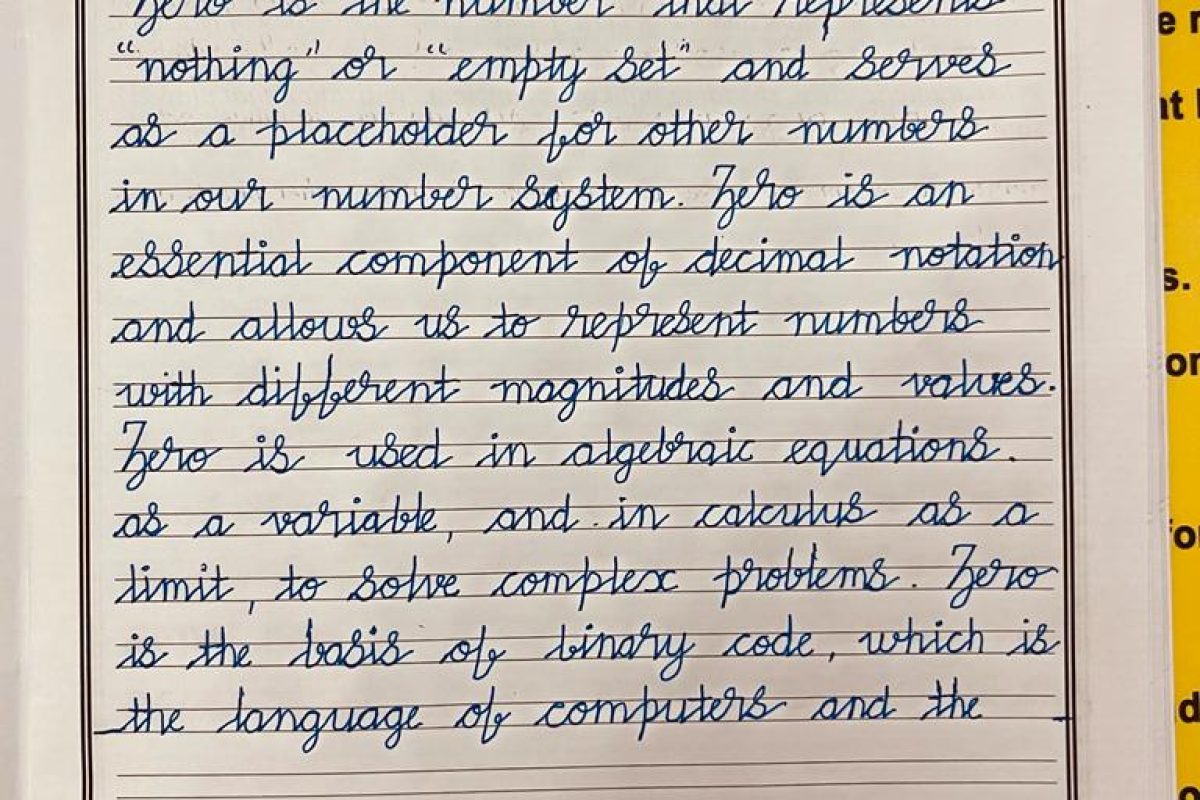 Zero is the number that represents
"nothing" or "empty set" and serves
as a placeholder for other numbers
in our number system. Zero is an
essential component of decimal notation
and allows us to represent numbers
with different magnitudes and values.
Zero is used in algebraic equations.
as a variable, and in calculus as a
limit, to solve complex problems. Zero
is the basis of binary code, which is
the language of computers and the